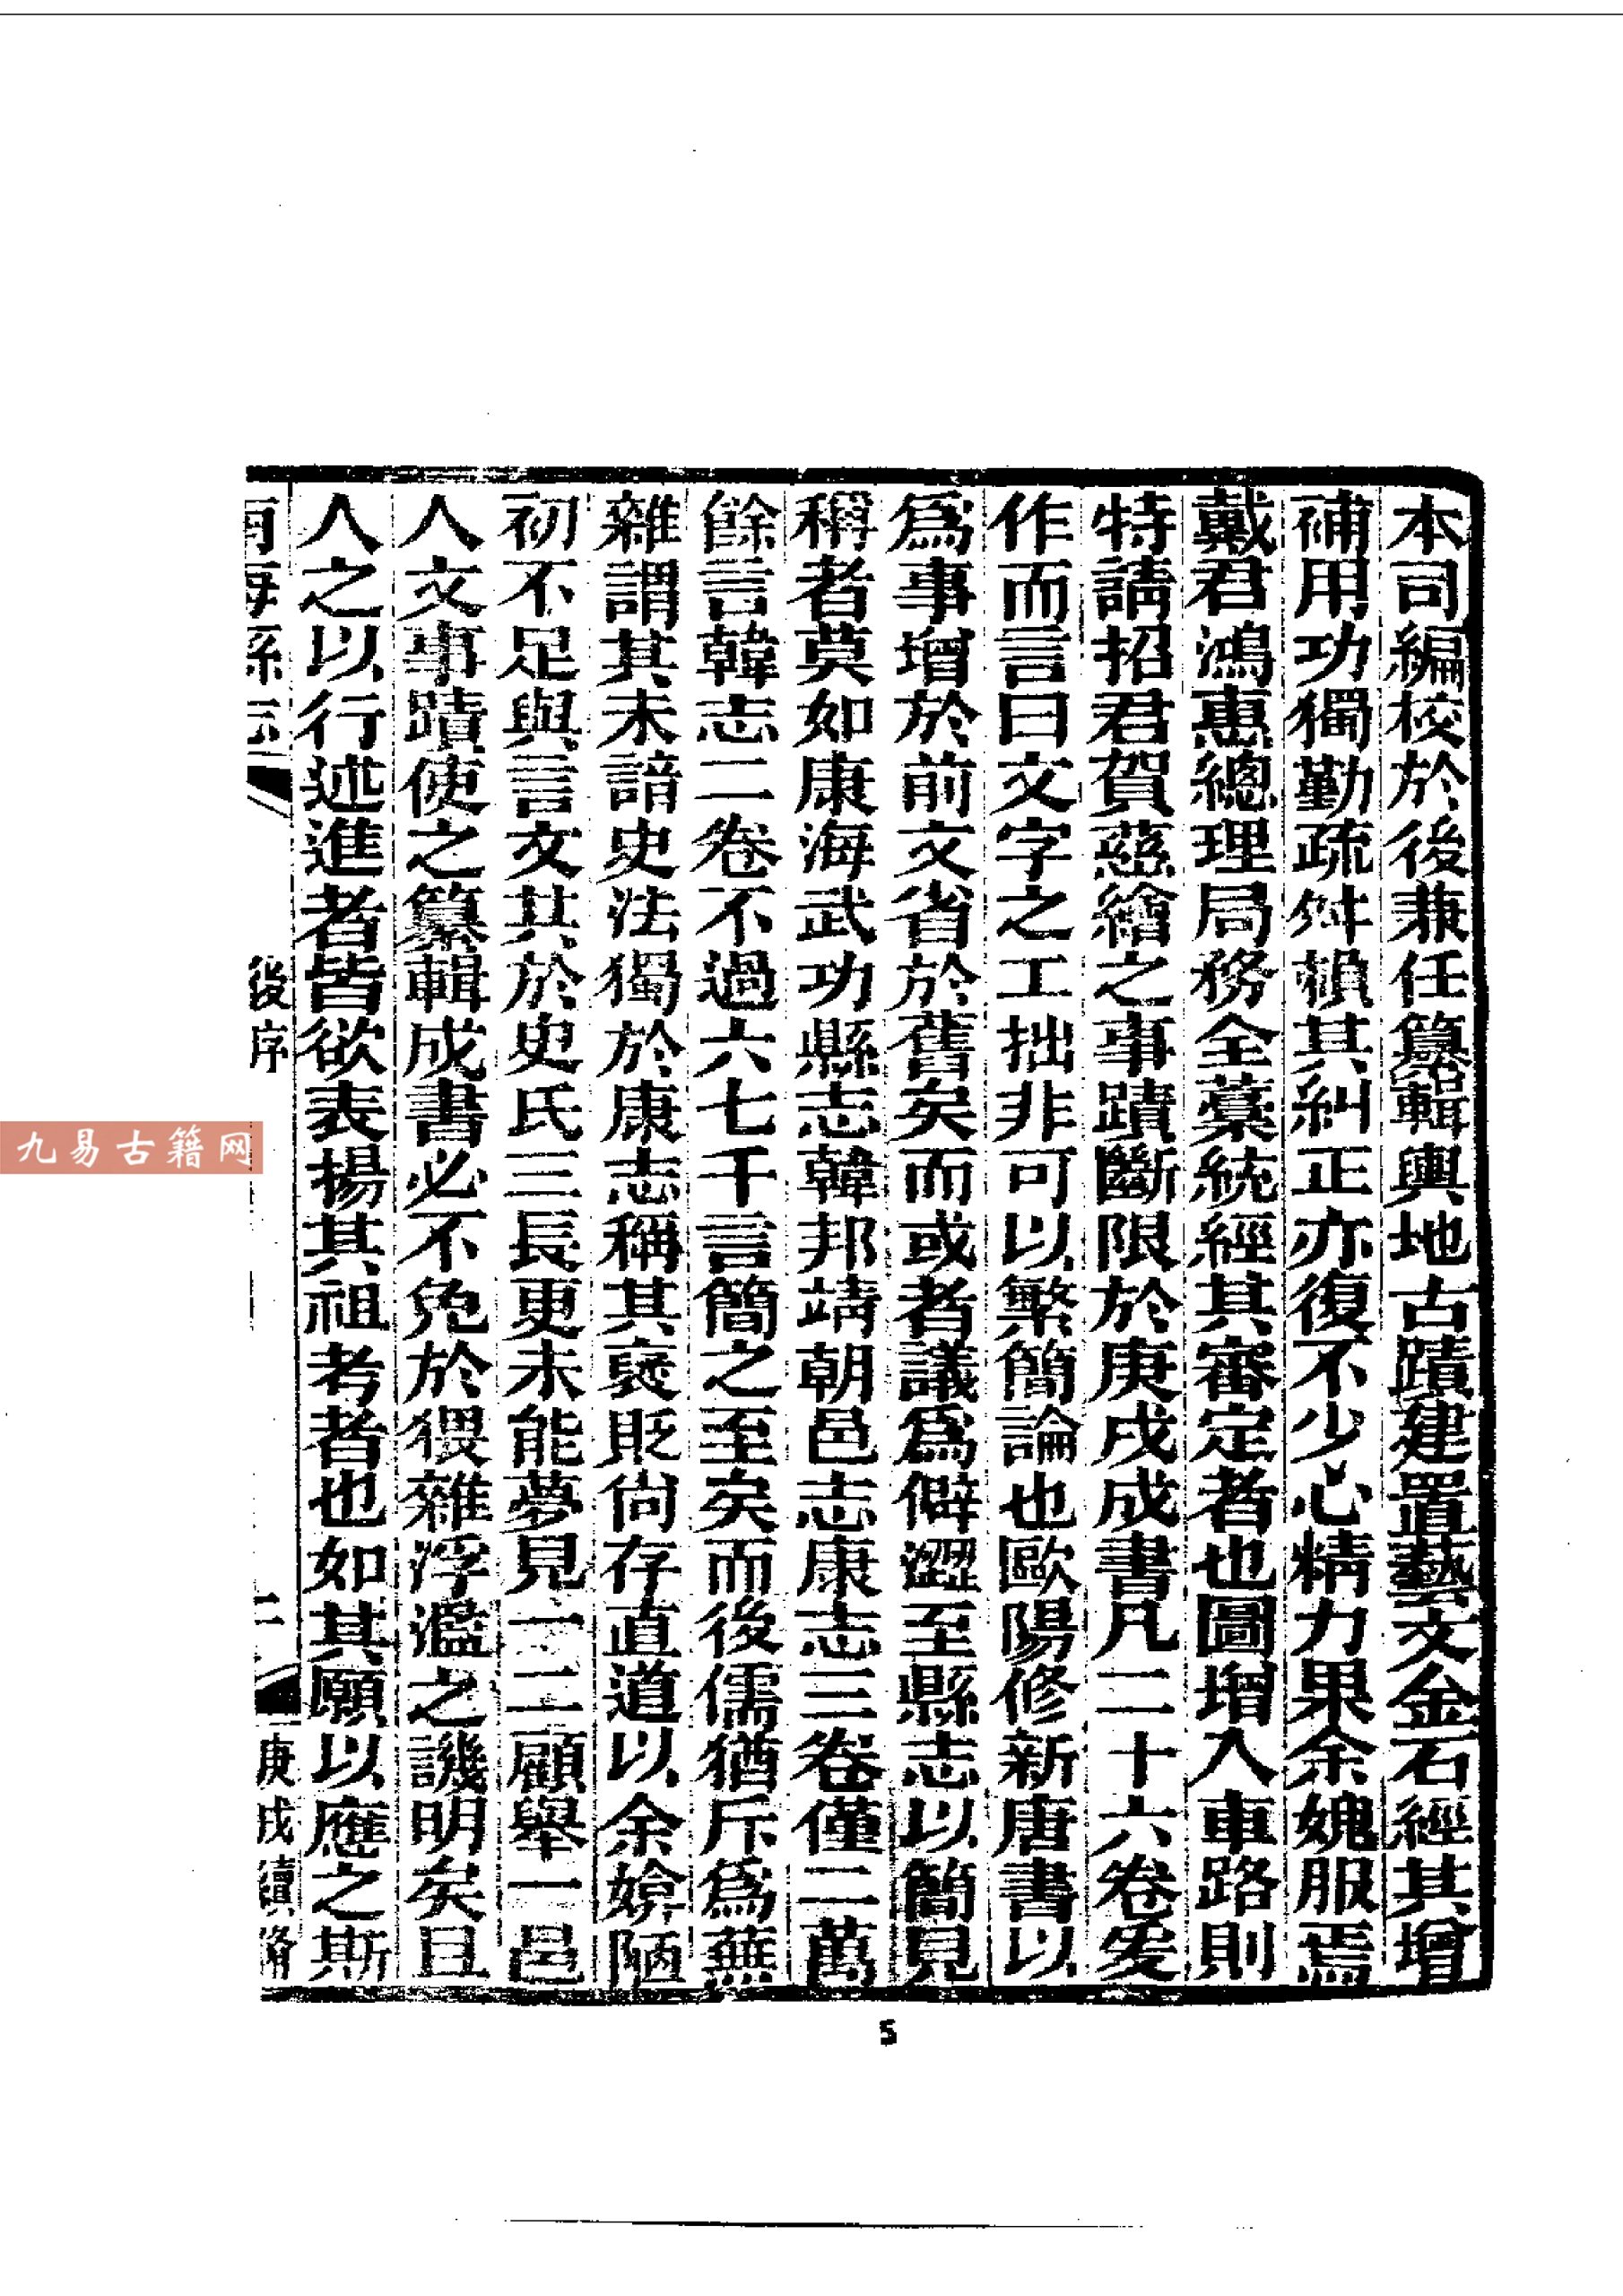 本司編校於後兼任纂輯輿地古蹟建置藝文金石經其增
補用功獨勤疏舛賴其糾正亦復不少心精力果余媿服焉
戴君鴻惠總理局務全藁統經其審定者也圖增入車路則
特請招君賀慈繪之事蹟斷限於庚戌成書凡二十六卷爰
作而言曰文字之工拙非可以繁簡論也歐陽修新唐書以
爲事增於前文省於舊矣而或者議爲僻澀至縣志以簡見
稱者莫如康海武功縣志韓邦靖朝邑志康志三卷僅二萬
餘言韓志二卷不過六七千言簡之至矣而後儒猶斥爲蕪
雜謂其未諳史法獨於康志稱其褒貶尙存直道以余媕陋
初不足與言文其於史氏三長更未能夢見一二顧舉一邑
人文事蹟使之纂輯成書必不免於猥雜浮濫之譏明矣且
人之以行述進者皆欲表揚其祖考者也如其願以應之斯
南海縣志 後序 二 庚戌續修
5
九易古籍网